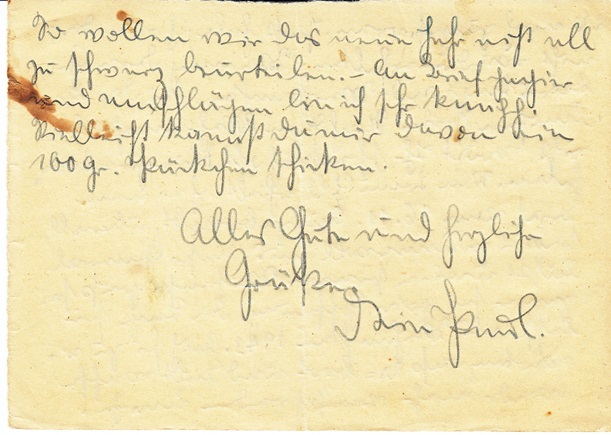 So wollen wir das neue Jahr nicht all
zu schwarz beurteilen. – An Briefpapier
und umschlägen bin ich sehr knapp.
Vielleicht kannst du mir davon ein
100 gr. Päckchen schicken.
Alles Gute und herzliche
Grüße
Dein Paul.